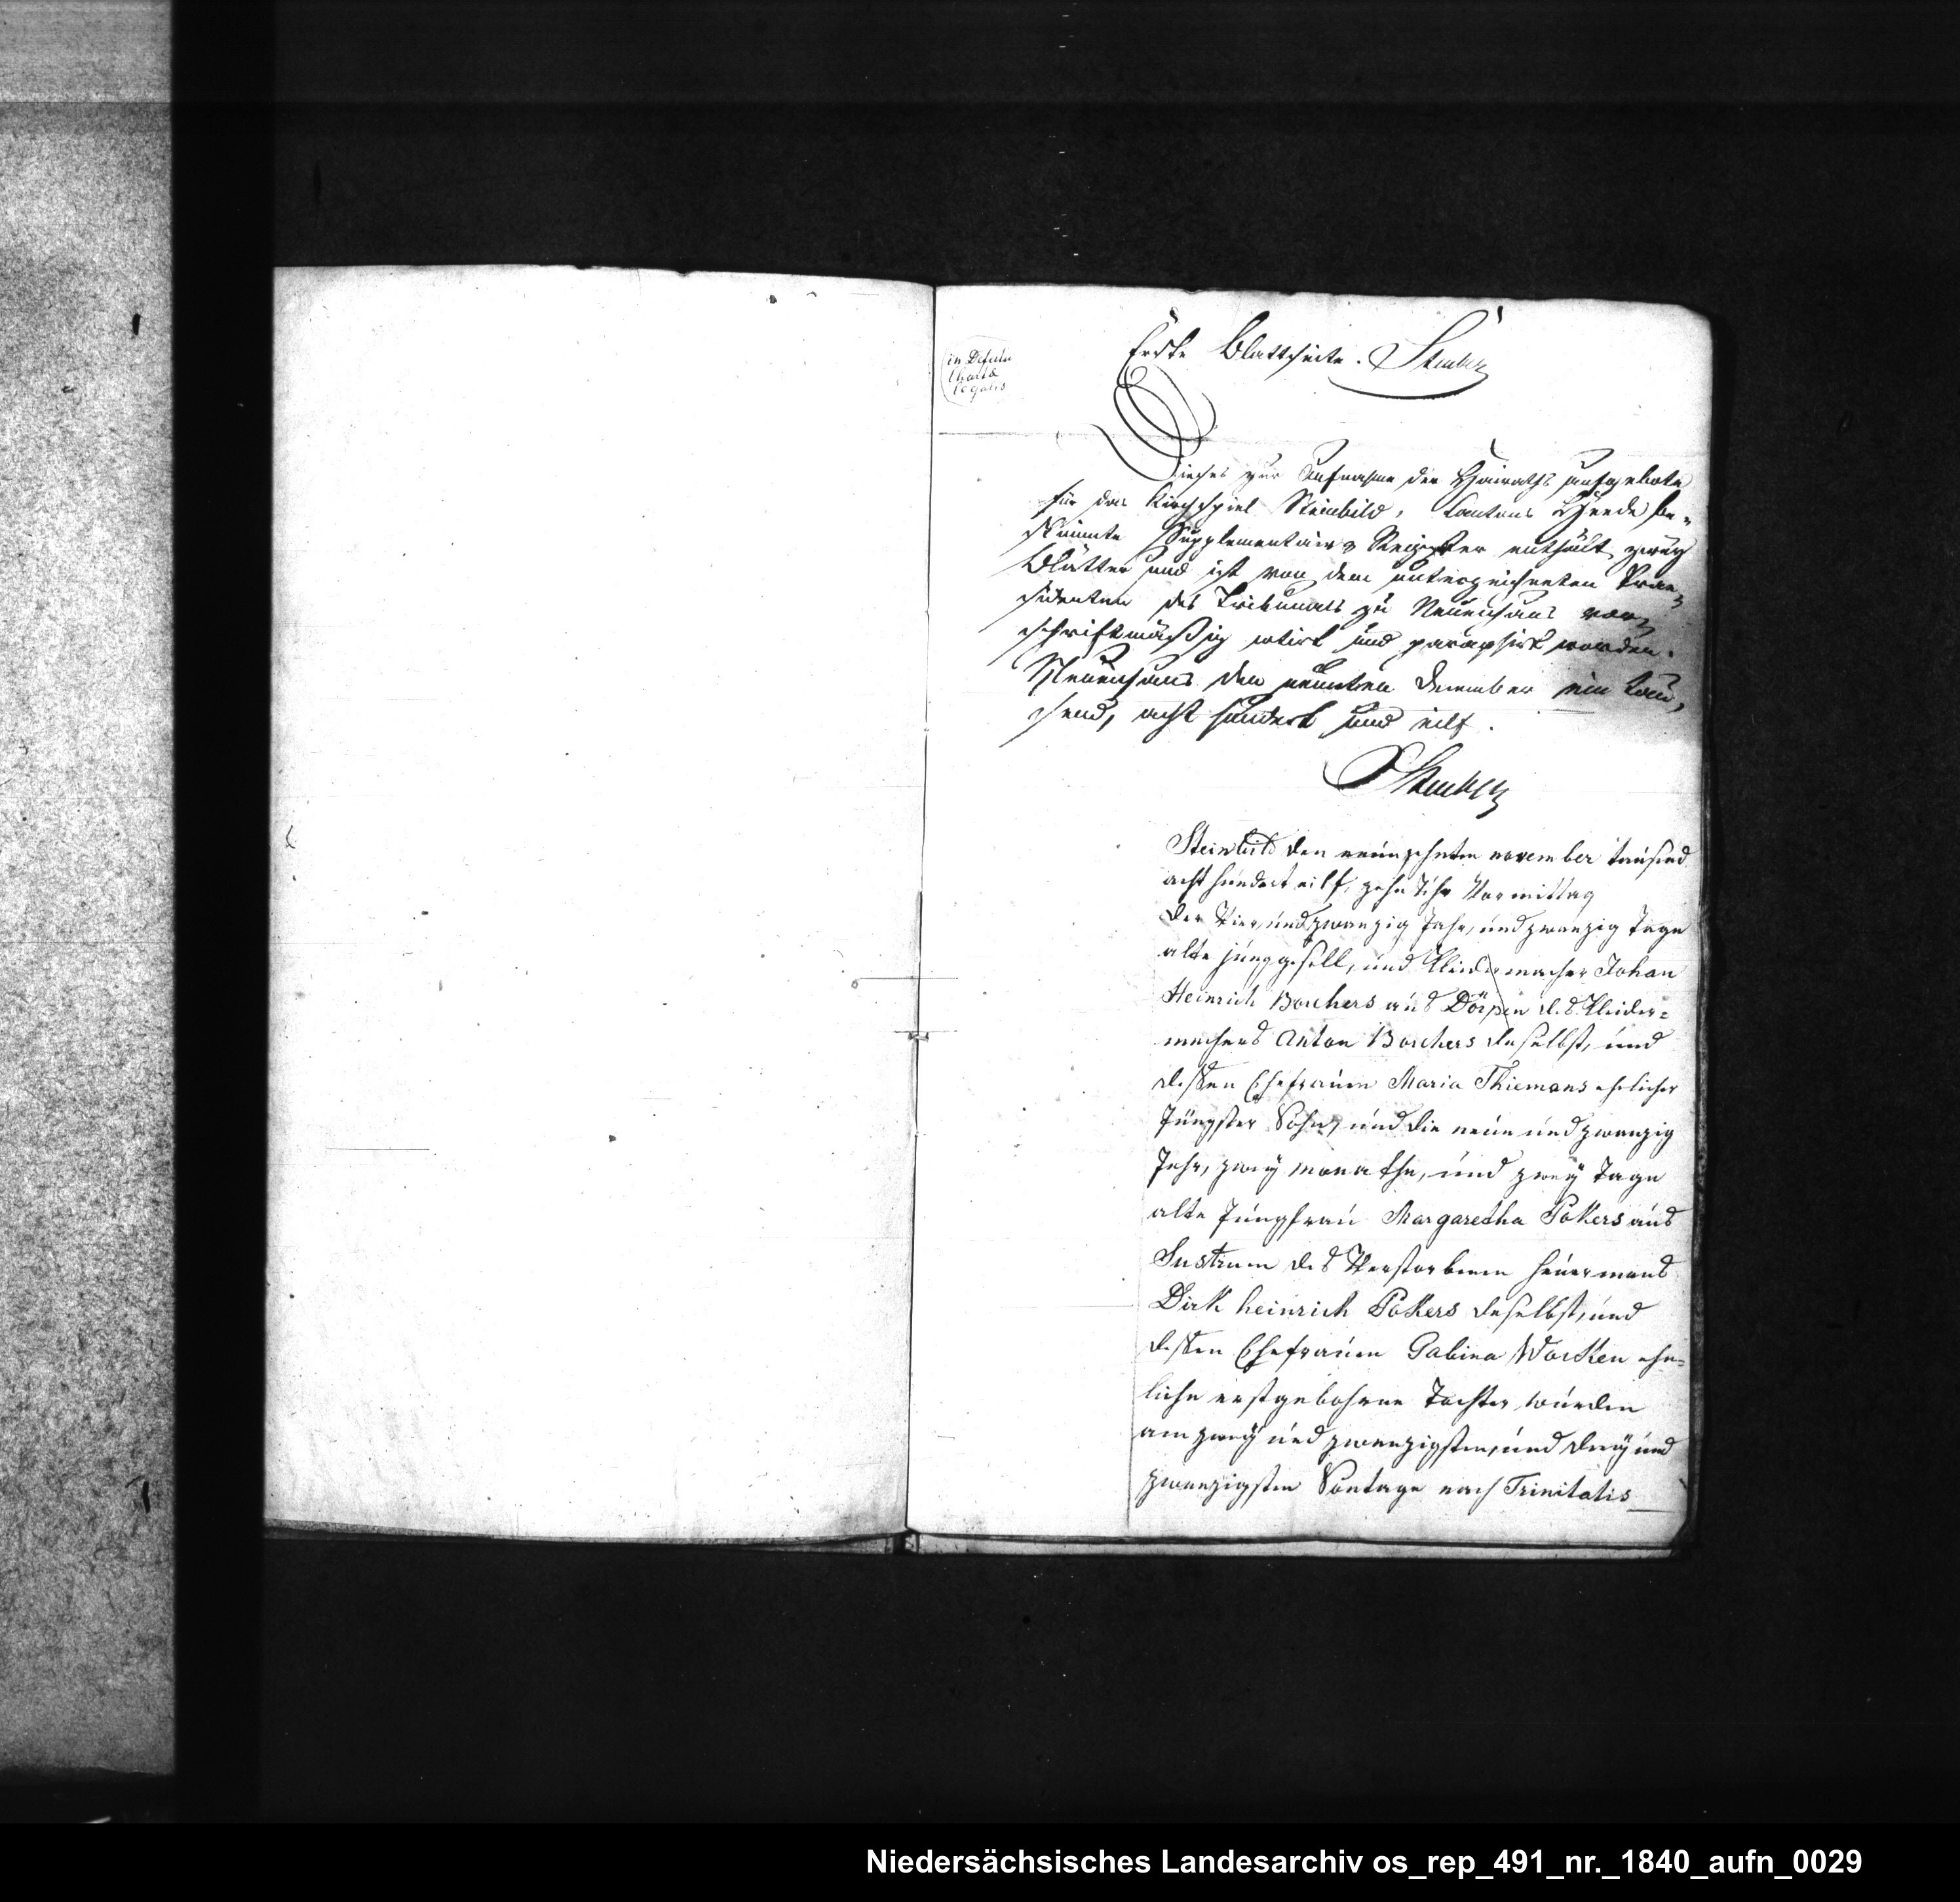 in Defectu
Charta
legalis
Erste Blattseite. Stuber
Dieses zur Aufnahme der Heiraths aufgebote
für das Kirchspiel Steinbild, Cantons Heede be-
stimmte Supplementair-Register enthält zwey
Blätter und ist von dem unterzeichneten Prae-
sidenten des Tribunals zu Neuenhaus vor-
schriftmäßig cotirt und paraphirt worden.
Neuenhaus den neunten December ein tau-
send, acht hundert und eilf.
Steinbild den neunzehnten november tausend
acht hundert eilf, zehn Uhr Vormittag
der Vier und zwanzig Jahr, und zwanzig Tage
alte junggesell, und Kleidermacher Johan
Heinrich Borchers aus Dörpen des Kleider=
machers Anton Borchers daselbst, und
dessen Ehefrauen Maria Thiemans ehelicher
Jüngster Sohn, und die neun und zwanzig
Jahr, zwey monathe, und zwey Tage
alte Jungfrau Margaretha Pokers aus
Sustrum des Verstorbenen heuermans
Dirk heinrich Pokers daselbst, und
dessen Ehefrauen Gabina Worken ehe=
liche erstgebohrne Tochter, wurden
am zwey und zwanzigsten, und drey und
zwanzigsten Sontage nach Trinitatis
Niedersächsisches Landesarchiv os_rep_491_nr._1840_aufn_0029